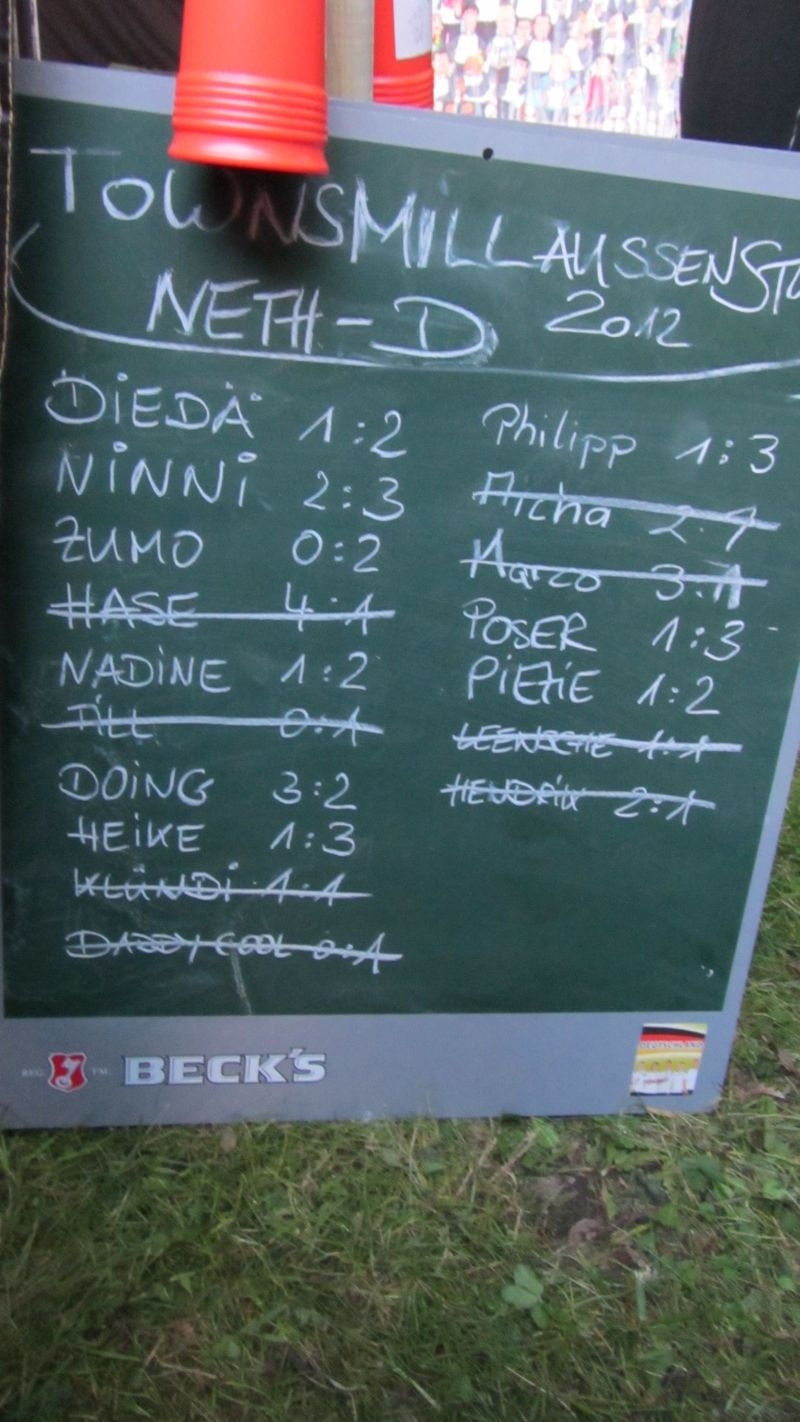 TOWNSMILLAUSSENST
NETH-D 2012
DIEDÄ 1:2
NINNI 2:3
ZUMO 0:2
HASE 4:1
NADINE 1:2
TILL 0:1
DOING 3:2
HEIKE 1:3
KLÜNDI 1:1
DADDY COOL 0:1
Philipp 1:3
Micha 2:1
Marco 3:1
POSER 1:3
PIEZIE 1:2
LEENSCHE 1:1
HENDRIX 2:1
BECK'S
DEUTSCHLAND